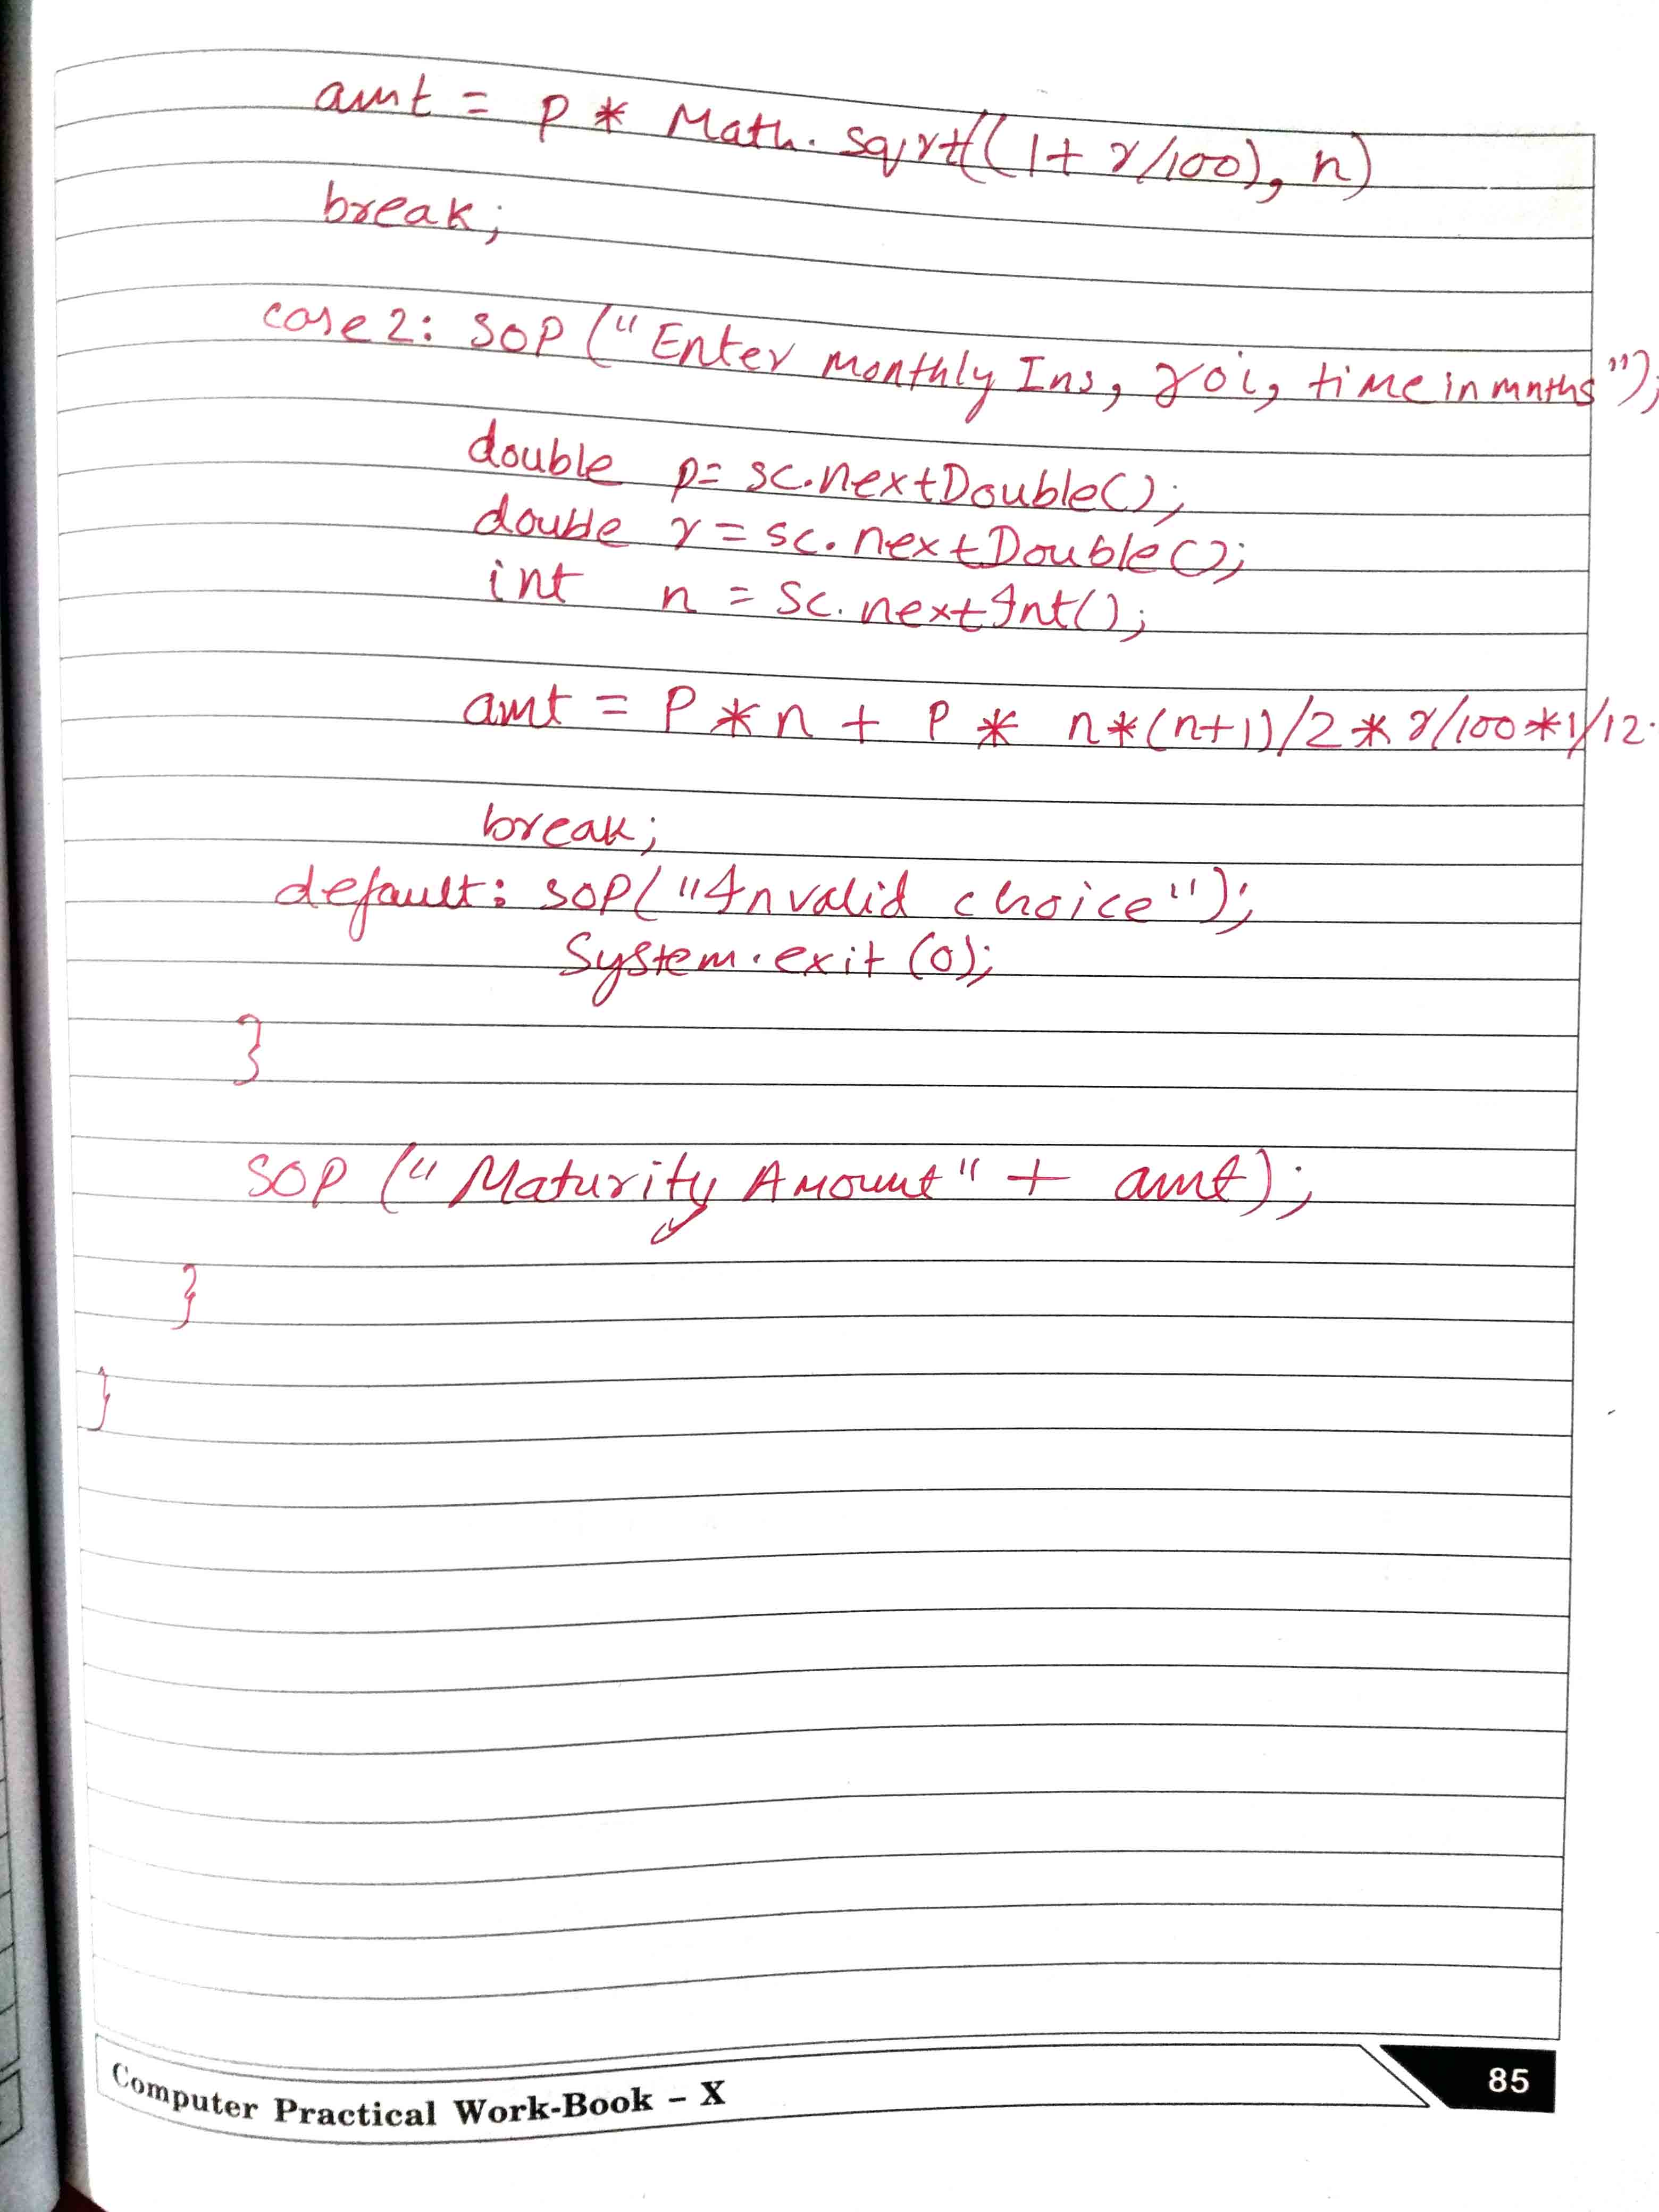 amt = p * Math.sqrt((1+ r/100), n)
break;
case 2: SOP ("Enter monthly Ins, roi, time in mnths");
double p= sc.nextDouble();
double r = sc.nextDouble();
int n = sc.nextInt();
amt = P * n + P * n*(n+1)/2 * r/100*1/12.
break;
default: SOP("Invalid choice");
System.exit(0);
}
SOP ("Maturity Amount" + amt);
}
}
Computer Practical Work-Book – X
85